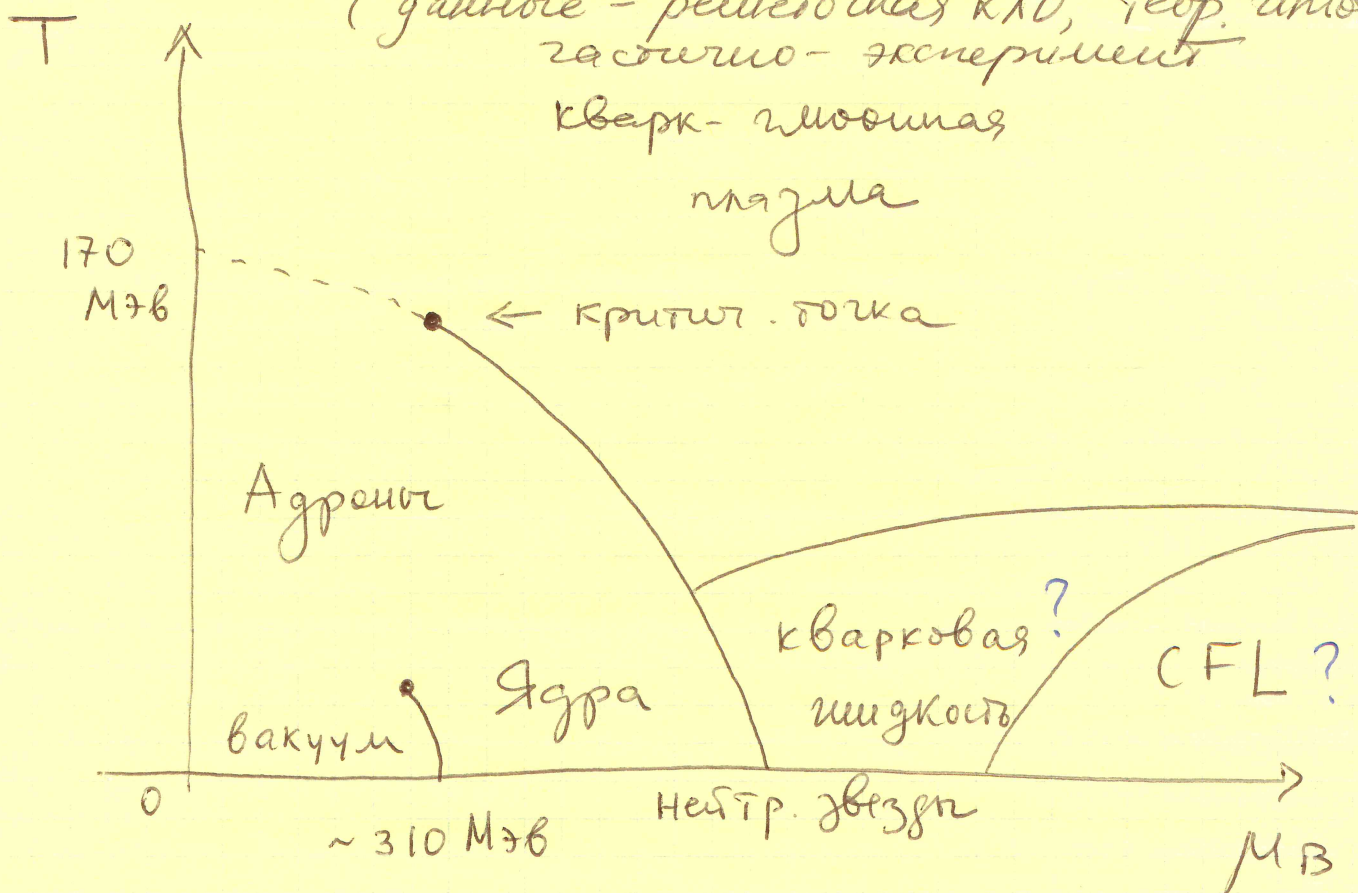 T
(данные – решеточная КХД, теор.
частично – эксперимент
кварк-глюонная
плазма
170
Мэв
← критич. точка
Адроны
кварковая ?
жидкость
CFL ?
Ядра
вакуум
0
~ 310 Мэв
нейтр. звезды
μ B